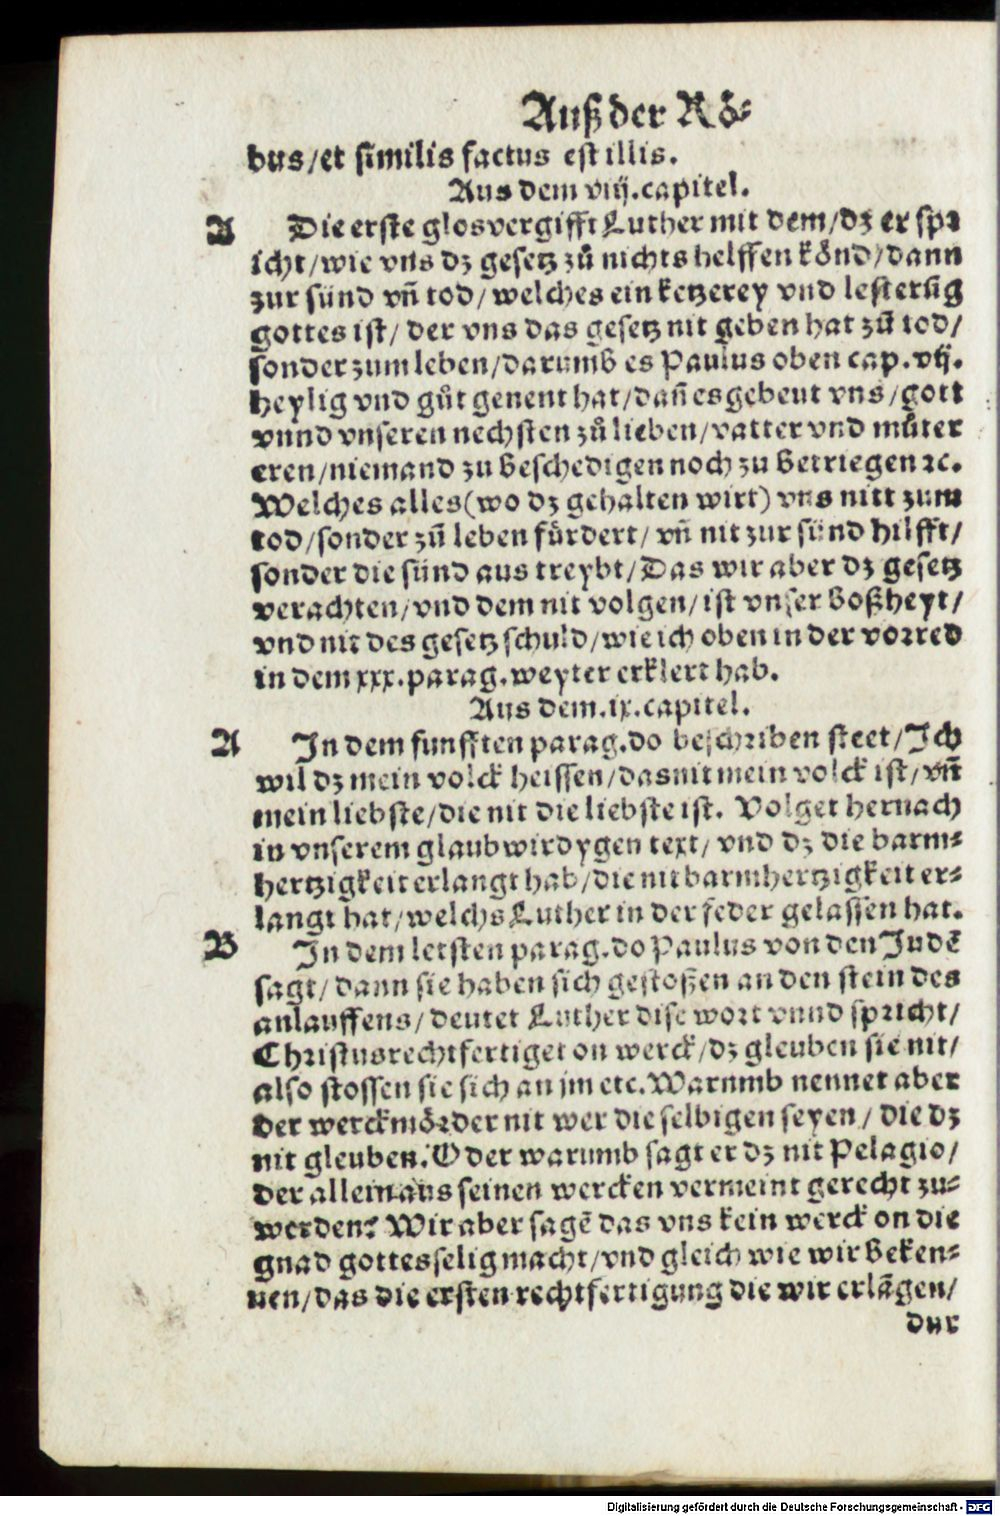 Auß der Rö⸗
bus/et similis factus est illis.
Aus dem viij.capitel.
A Die erste glos vergifft Luther mit dem/dz er spr
icht/wie vns dz gesetz zů nichts helffen könd/dann
zur sünd vñ tod/welches ein ketzerey vnd lesterũg
gottes ist/ der vns das gesetz nit geben hat zů tod/
sonder zum leben/darumb es Paulus oben cap.vij.
heylig vnd gůt genent hat/dañ es gebeut vns/gott
vnnd vnseren nechsten zů lieben/vatter vnd můter
eren/niemand zu beschedigen noch zu betriegen ꝛc.
Welches alles(wo dz gehalten wirt) vns nitt zum
tod/sonder zů leben fürdert/ vñ nit zur sünd hilfft/
sonder die sünd aus treybt/Das wir aber dz gesetz
verachten/vnd dem nit volgen/ist vnser boßheyt/
vnd nit des gesetz schuld/wie ich oben in der vorred
in dem xxx.parag.weyter erklert hab.
Aus dem.ix.capitel.
A In dem funfften parag.do beschriben steet/Ich
wil dz mein volck heissen/das nit mein volck ist/vñ
mein liebste/die nit die liebste ist. Volget hernach
in vnserem glaubwirdygen text/ vnd dz die barm⸗
hertzigkeit erlangt hab/die nit barmhertzigkeit er⸗
langt hat/welchs Luther in der feder gelassen hat.
B In dem letsten parag.do Paulus von den Judẽ
sagt/dann sie haben sich gestoßen an den stein des
anlauffens/deutet Luther dise wort vnnd spricht/
Christus rechtfertiget on werck/dz gleuben sie nit/
also stossen sie sich an jm etc.Warumb nennet aber
der werckmörder nit wer die selbigen seyen/ die dz
nit gleuben.Oder warumb sagt er dz nit Pelagio/
der allein aus seinen wercken vermeint gerecht zu⸗
werden? Wir aber sagẽ das vns kein werck on die
gnad gottes selig macht/vnd gleich wie wir beken⸗
nen/das die ersten rechtfertigung die wir erlãgen/
dur
Digitalisierung gefördert durch die Deutsche Forschungsgemeinschaft - DFG